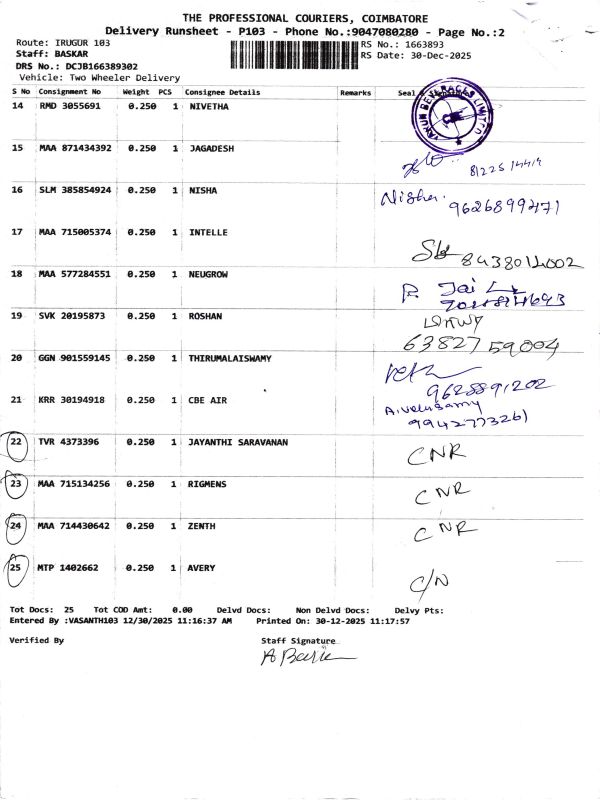 THE PROFESSIONAL COURIERS, COIMBATORE
Delivery Runsheet - P103 - Phone No.:9047080280 - Page No.:2
Route: IRUGUR 103
RS No.: 1663893
Staff: BASKAR
RS Date: 30-Dec-2025
DRS No.: DCJB166389302
Vehicle: Two Wheeler Delivery
S No Consignment No Weight PCS Consignee Details Remarks Seal
14 RMD 3055691 0.250 1 NIVETHA
BEVERAGES LIMITED
15 MAA 871434392 0.250 1 JAGADESH
16 SLM 385854924 0.250 1 NISHA
Nisha. 9626899471
17 MAA 715005374 0.250 1 INTELLE
8438014002
18 MAA 577284551 0.250 1 NEUGROW
P. Jai
19 SVK 20195873 0.250 1 ROSHAN
63827 59004
20 GGN 901559145 0.250 1 THIRUMALAISWAMY
9628891202
21 KRR 30194918 0.250 1 CBE AIR
A.Velusamy
9942773261
22 TVR 4373396 0.250 1 JAYANTHI SARAVANAN
CNR
23 MAA 715134256 0.250 1 RIGMENS
CNR
24 MAA 714430642 0.250 1 ZENTH
CNR
25 MTP 1402662 0.250 1 AVERY
C/N
Tot Docs: 25 Tot COD Amt: 0.00 Delvd Docs: Non Delvd Docs: Delvy Pts:
Entered By :VASANTH103 12/30/2025 11:16:37 AM Printed On: 30-12-2025 11:17:57
Verified By Staff Signature